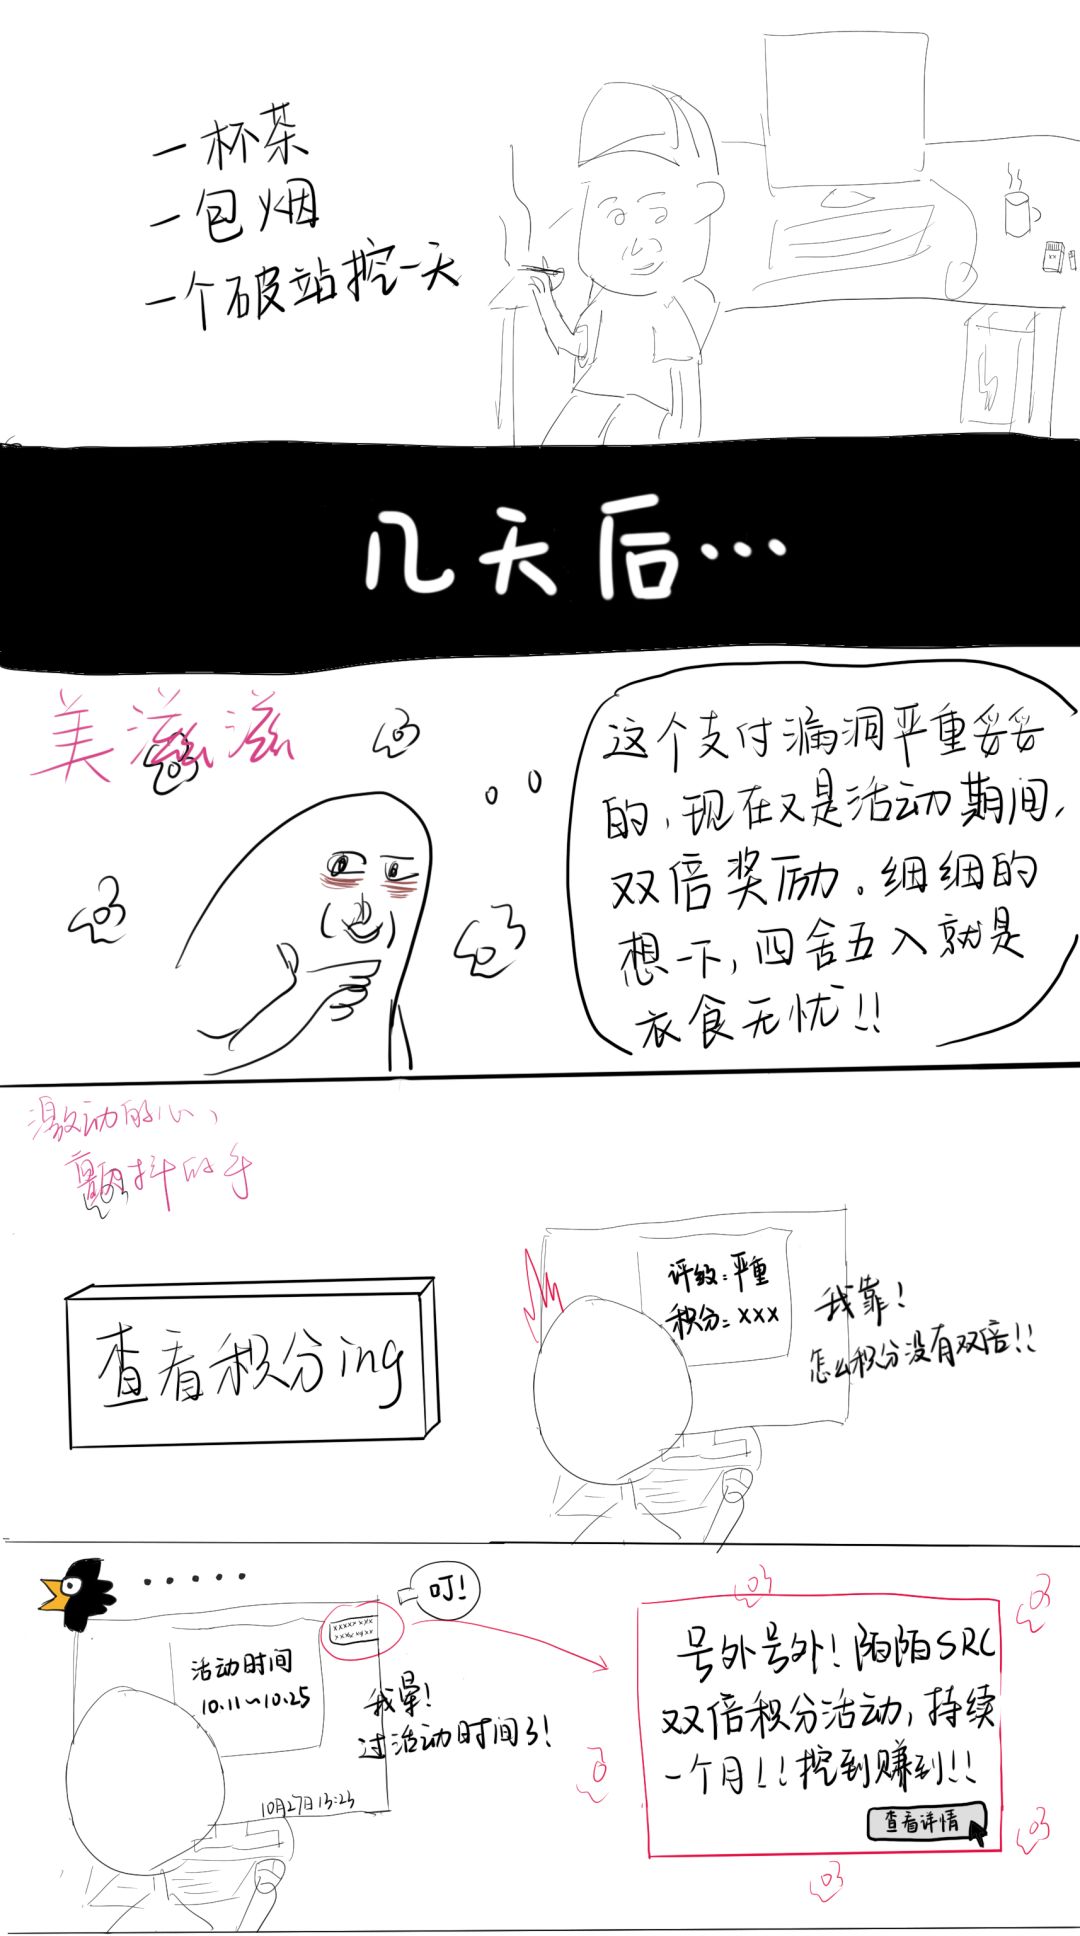 一杯茶
一包烟
一个破站挖一天
几天后...
美滋滋
这个支付漏洞严重妥妥
的,现在又是活动期间,
双倍奖励。细细的
想一下,四舍五入就是
衣食无忧!!
激动的心,
颤抖的手
查看积分ing
评级:严重
积分:xxx
我靠!
怎么积分没有双倍!!
.....
叮!
xxxxxxxx
xxxxxxxx
活动时间
10.11~10.25
我晕!
过活动时间了!
10月27日13:23
号外号外!陌陌SRC
双倍积分活动,持续
一个月!!挖到赚到!!
查看详情